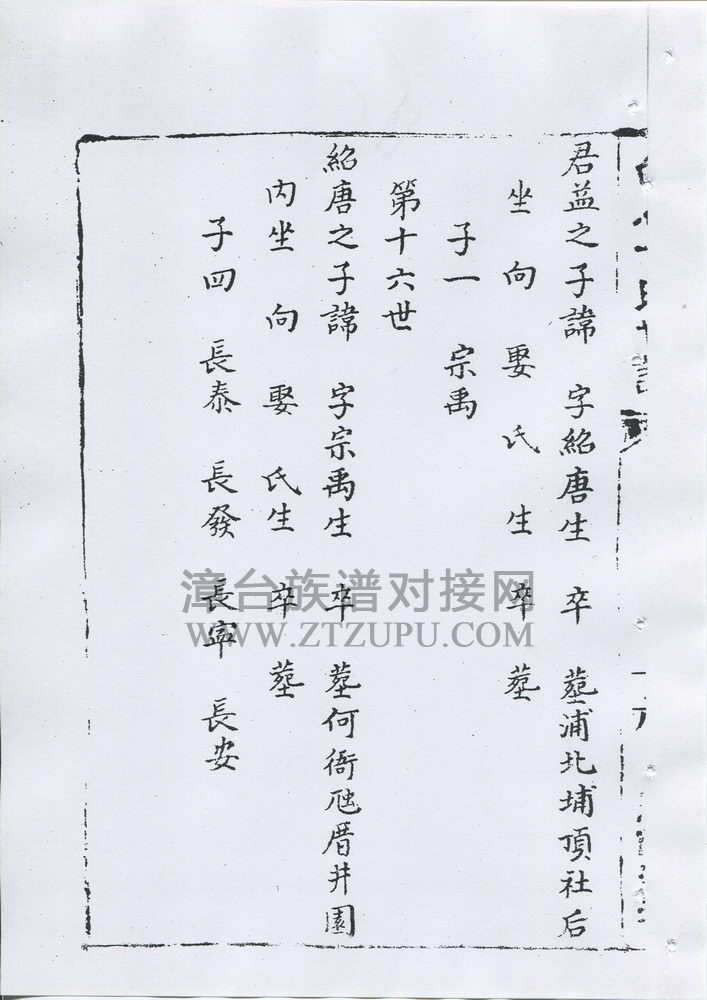 君益之子諱 字紹唐生 卒 塟浦北埔頂社后
坐 向 娶 氏 生 卒 塟
子一 宗禹
第十六世
紹唐之子諱 字宗禹生 卒 塟何衙 厝井園
内坐 向 娶 氏生 卒 塟
子四 長泰 長發 長寧 長安
漳台族谱对接网
WWW.ZTZUPU.COM